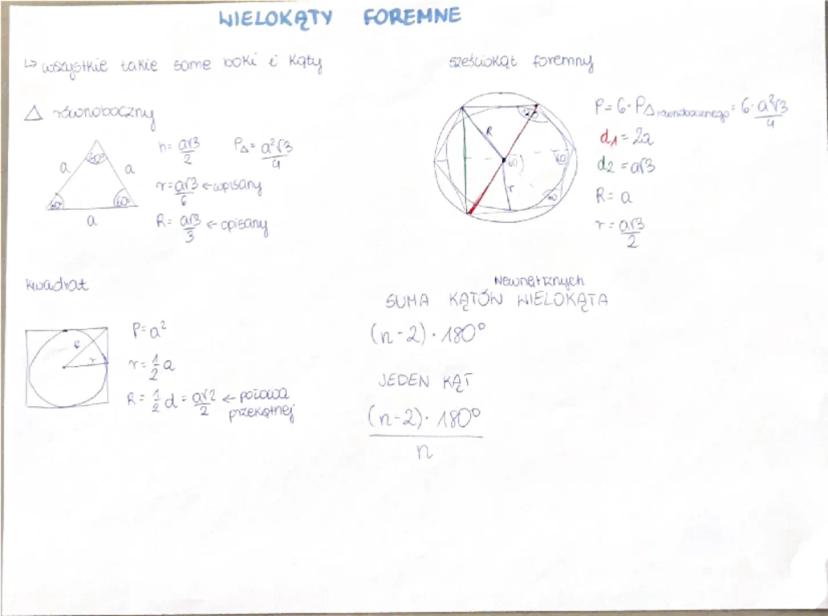 WIELOKĄTY FOREMNE
↳ wszystkie takie same boki i kąty
△ równoboczny
a
a
a
60°
60°
60°
h = a√3/2
P△ = a²√3/4
r = a√3/6 ← wpisany
R = a√3/3 ← opisany
sześciokąt foremny
R
r
60
60
P = 6 · P△ równobocznego = 6 · a²√3/4
d1 = 2a
d2 = a√3
R = a
r = a√3/2
kwadrat
r
P = a²
r = ½a
R = ½d = a√2/2 ← połowa
przekątnej
wewnętrznych
SUMA KĄTÓW WIELOKĄTA
(n-2) · 180°
JEDEN KĄT
(n-2) · 180°
n